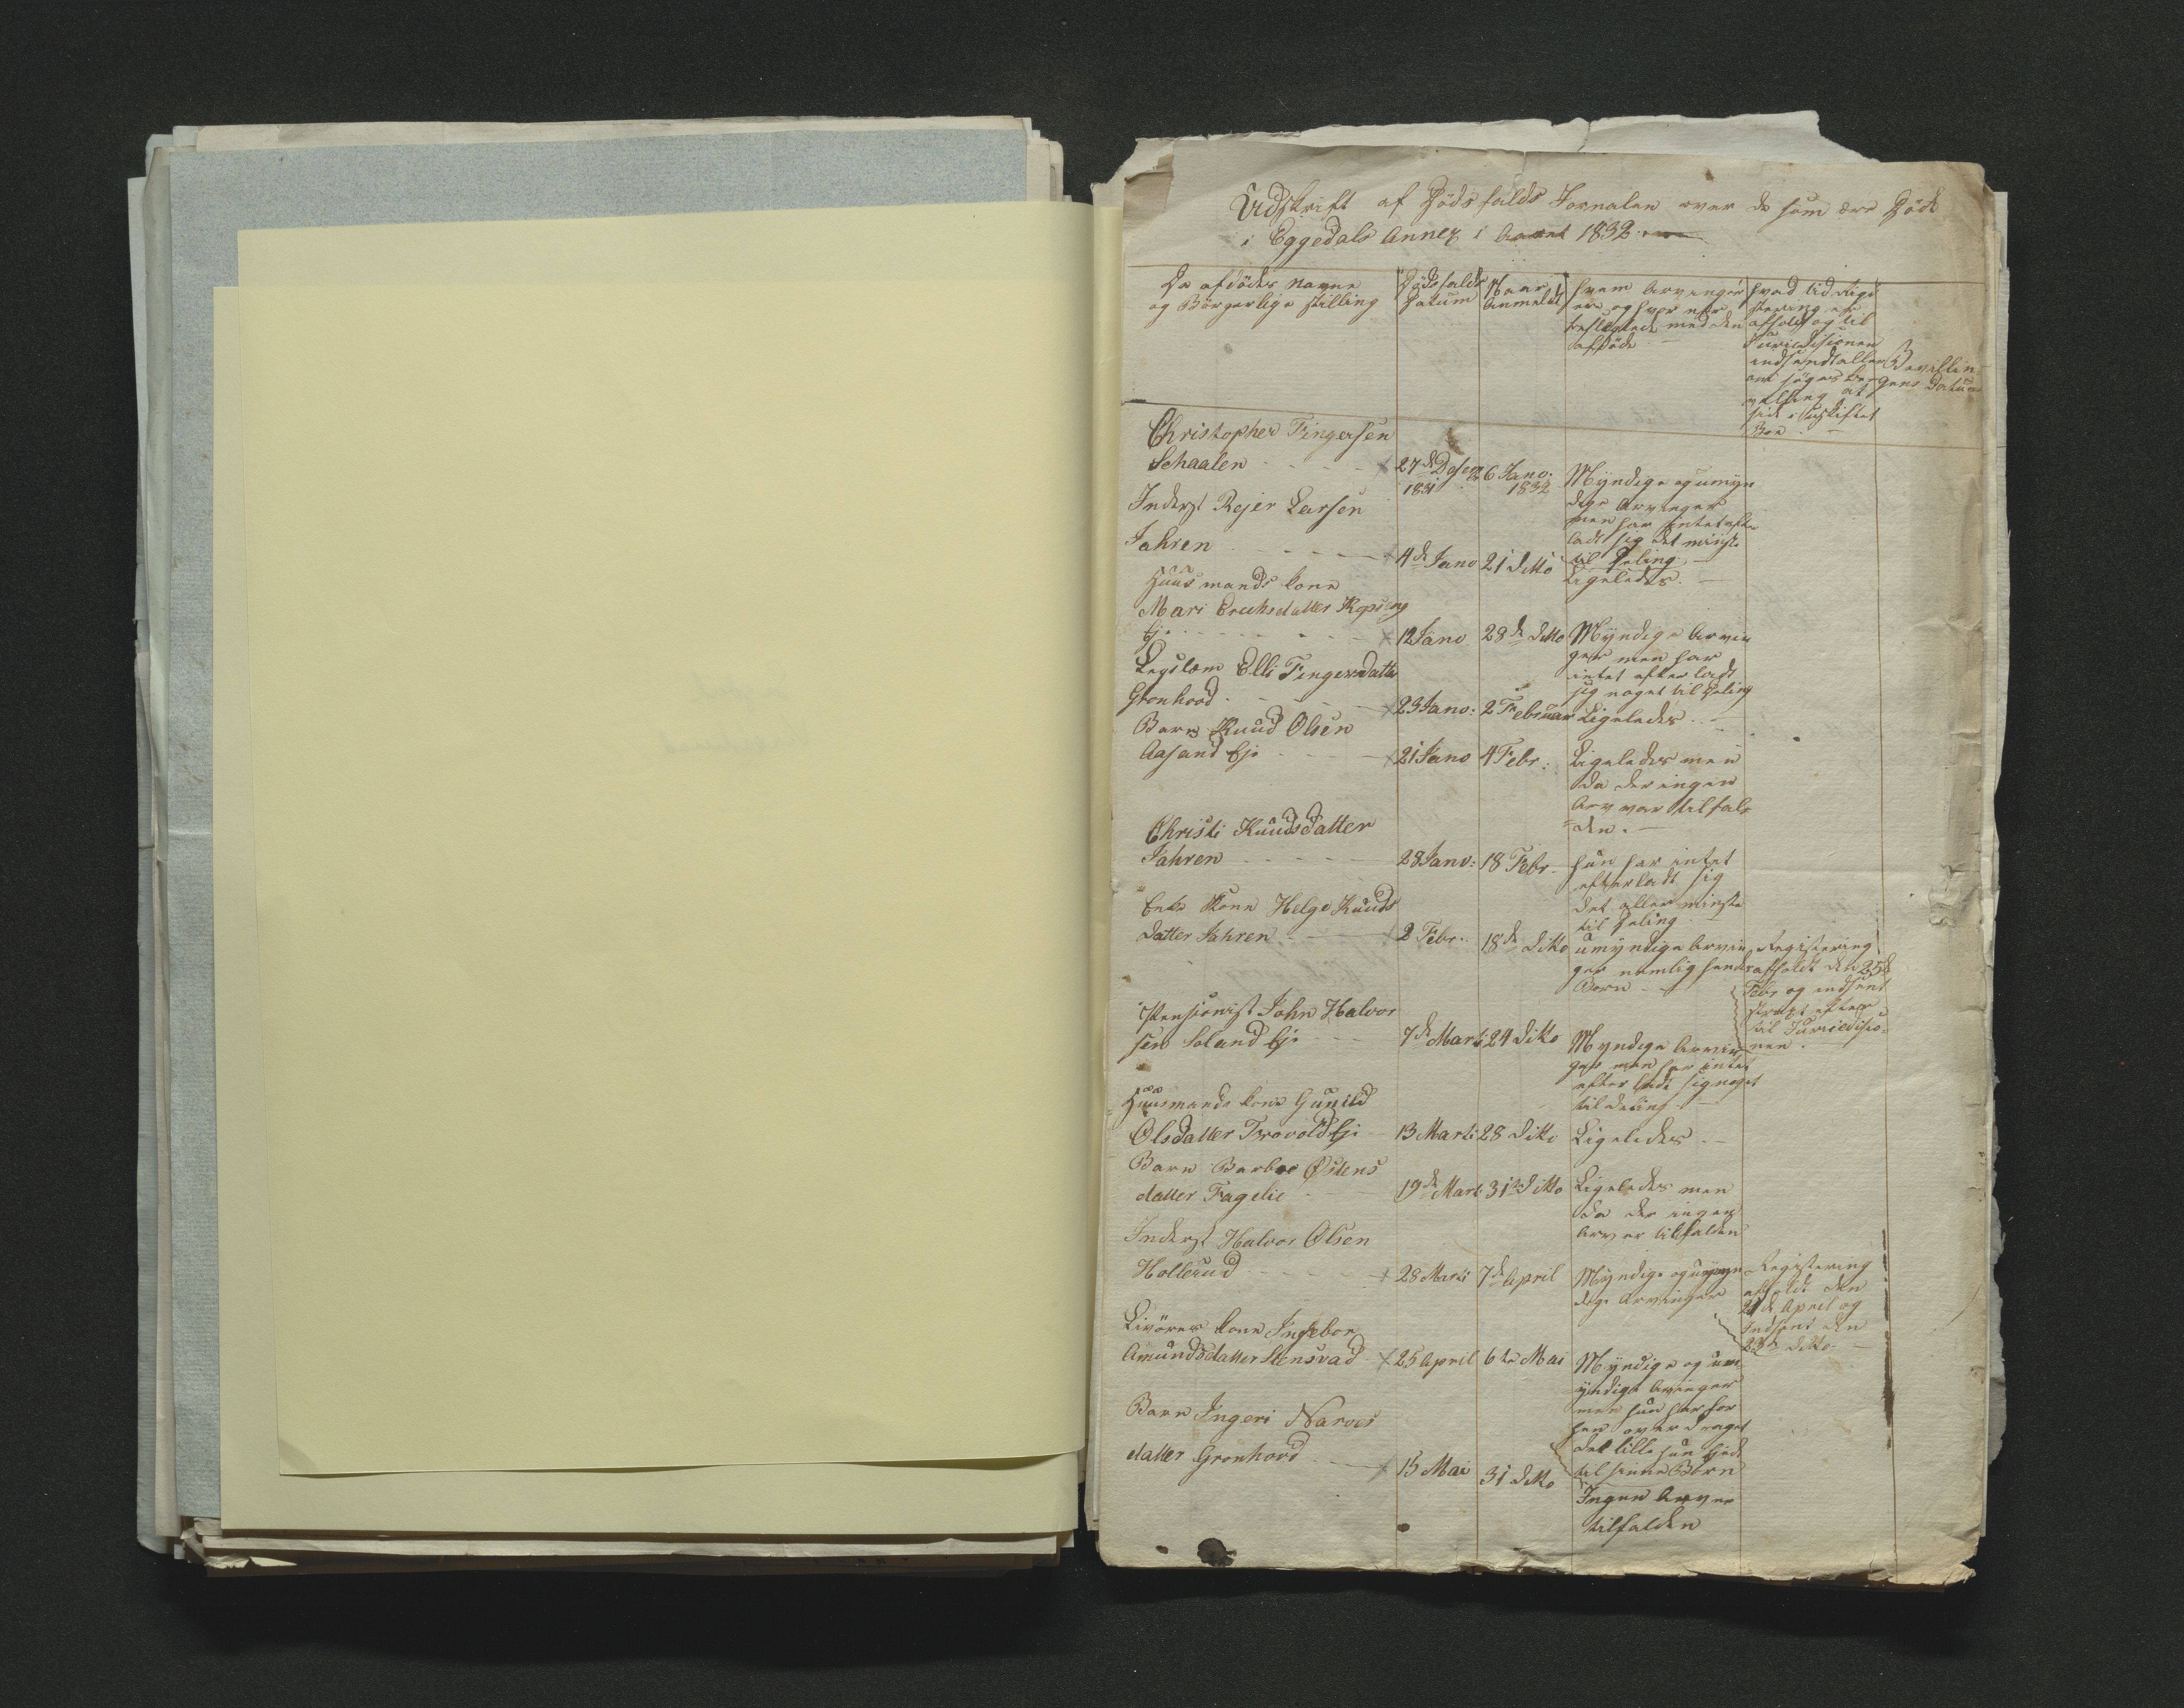 Udskrift af Döds falds Jornalen over de som ere Döde
i Eggedals Annex i Aaret 1832
De afdödes Navne
og Borgerlige stilling
Dödsfalds
Datum
Naar
Anmeldt
hvem Arvinger
er, og hvor nær
beslegtede med den
afdöde
hvad tid Regi
stering er
afholdt og til
Juricdisionen
indsendt eller
om söges be
at
side i uskiftet
Boe
Bevillin
gens Datum
Christopher Fingersen
Schaalen
27de Desem
1831
6 Jano:
1832
Myndige og umyn
dige Arvinger
men har intet efter
ladt sig det minste
til Deling
Inderst Rejer Larsen
Jahren
4de Jano
21 ditto
Ligeledes
Huusmands kone
Mari Erichsdatter
Ej
12 Jano
28de ditto
Myndige Arvin
ger men har
intet efter ladt
sig noget til Deling
Legslem Elli Fingersdatter
Gronhovd
23 Jano:
2 Februar
Ligeledes
Barn Knud Olsen
Aasand Eje
21 Jano
4 Febr:
Ligeledes men
da der ingen
Arv var tilfal
den
Christi Knudsdatter
Jahren
28 Jano:
18 Febr
hun har intet
efterladt sig
det aller minste
til Deling
Enke Kone Helge Knuds
datter Jahren
2 Febr.
18de ditto
umyndige Arvin
ger nemlig hendes
Börn
Registering
afholdt den 25de
Febr og indsent
strax efter
til Juricdisio
nen
Pensionist John Halvor
sen Soland Eje
7de Marti
24 ditto
Myndige Arvin
ger men har intet
efter ladt sig noget
til deling
Huusmands kone Gunild
Olsdatter Trovold Eje
13 Marti
28 ditto
Ligeledes
Barn Barbro Østens
datter Fagelie
19de Mart:
31te ditto
Ligeledes men
da der ingen
Arv er tilfalden
Inderst Halvor Olsen
Hollerud
28 Marti
7de April
Myndige og umyn
dige Arvinger
Registering
afholdt den
21de April og
Indsent den
23de ditto
Livöres kone Ingebor
Amundsdatter Stensrad
25 April
6te Mai
Myndige og um
yndige Arvinger
men hun har for
hen overdraget
det lille hun Ejede
til sinne Börn
Barn Ingeri Narves
datter Gronhovd
15 Mai
31 ditto
Ingen Arv er
tilfalden